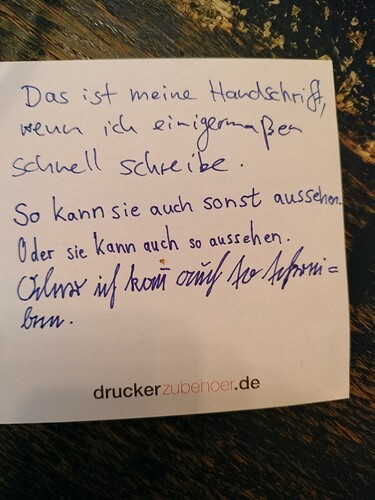 Das ist meine Handschrift,
wenn ich einigermaßen
schnell schreibe.
So kann sie auch sonst aussehen.
Oder sie kann auch so aussehen.
Oder ich kann auch so schrei-
ben.
druckerzubehoer.de